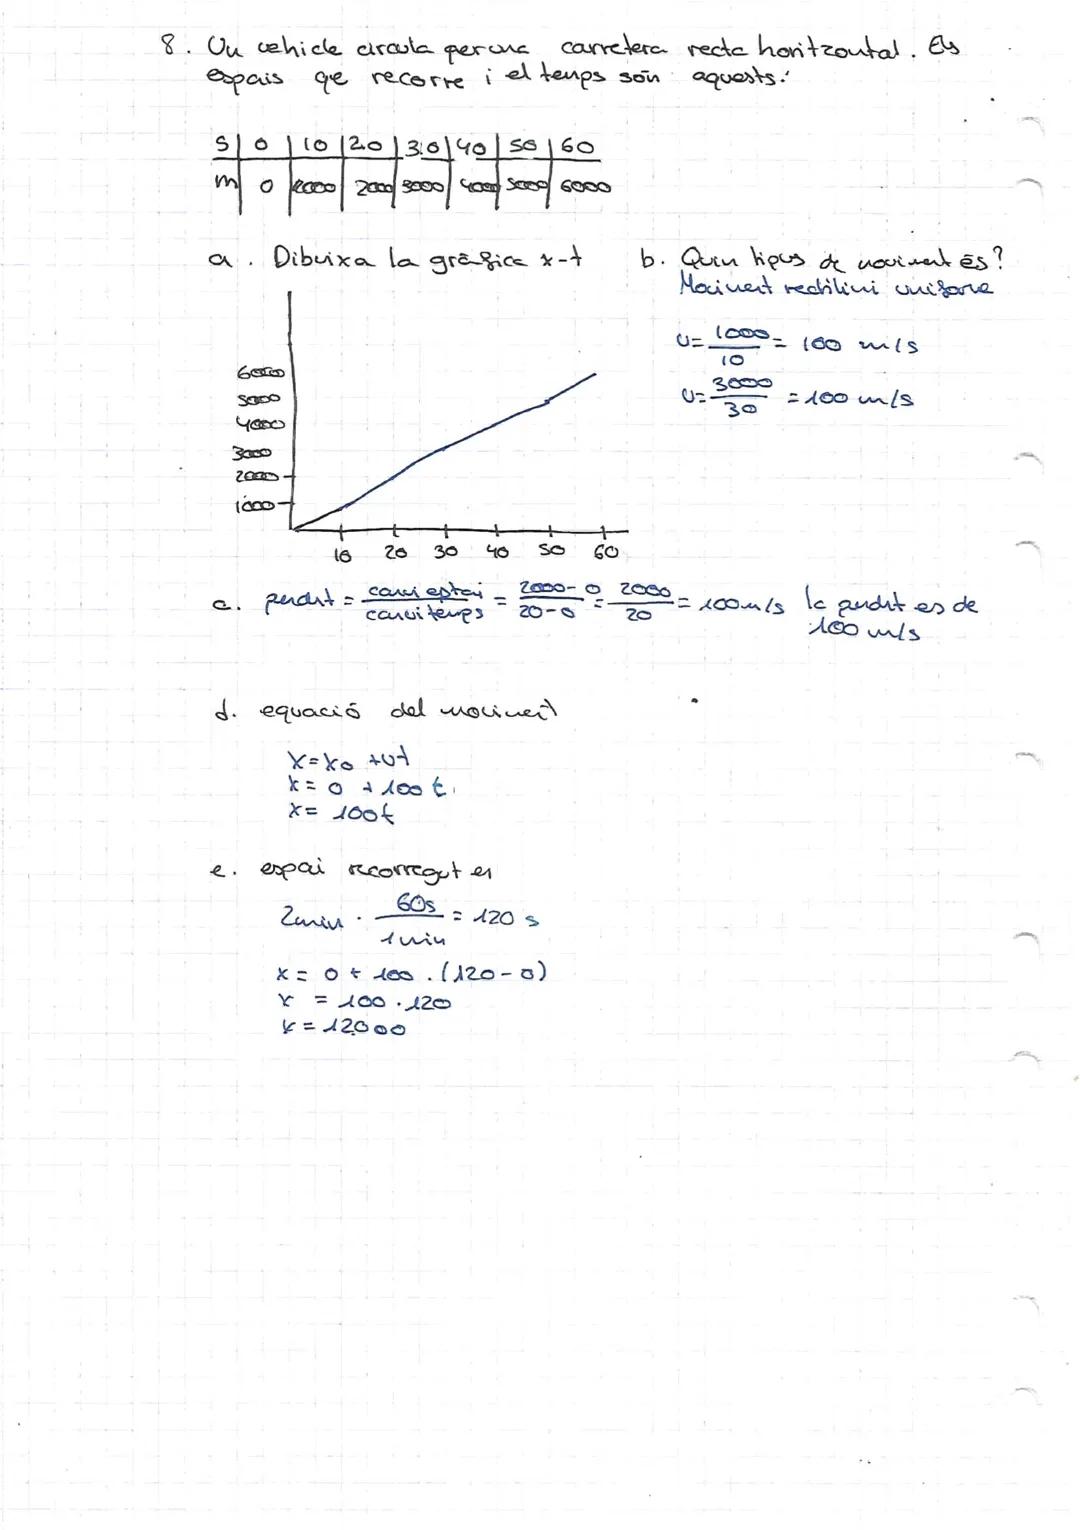 8. Un vehicle circula per una carretera recta horitzontal. Els
espais qe recorre i el temps són aquests:
S | 0 | 10 | 20 | 30 | 40 | 50 | 60
m | 0 | 1000 | 2000 | 3000 | 4000 | 5000 | 6000
a. Dibuixa la gràfica x-t
6000
5000
4000
3000
2000
1000
10 20 30 40 50 60
b. Quin tipus de moviment és?
Moviment rectilini uniforme
v= 1000/10 = 100 m/s
v= 3000/30 = 100 m/s
c. pendent = canvi espai/canvi temps = 2000-0/20-0 = 2000/20 = 100 m/s la pendent es de
100 m/s
d. equació del moviment
x=x0 +vt
x= 0 + 100 t
x= 100t
e. espai recorregut en
2min · 60s/1min = 120 s
x= 0 + 100 · (120-0)
x = 100·120
x = 12000